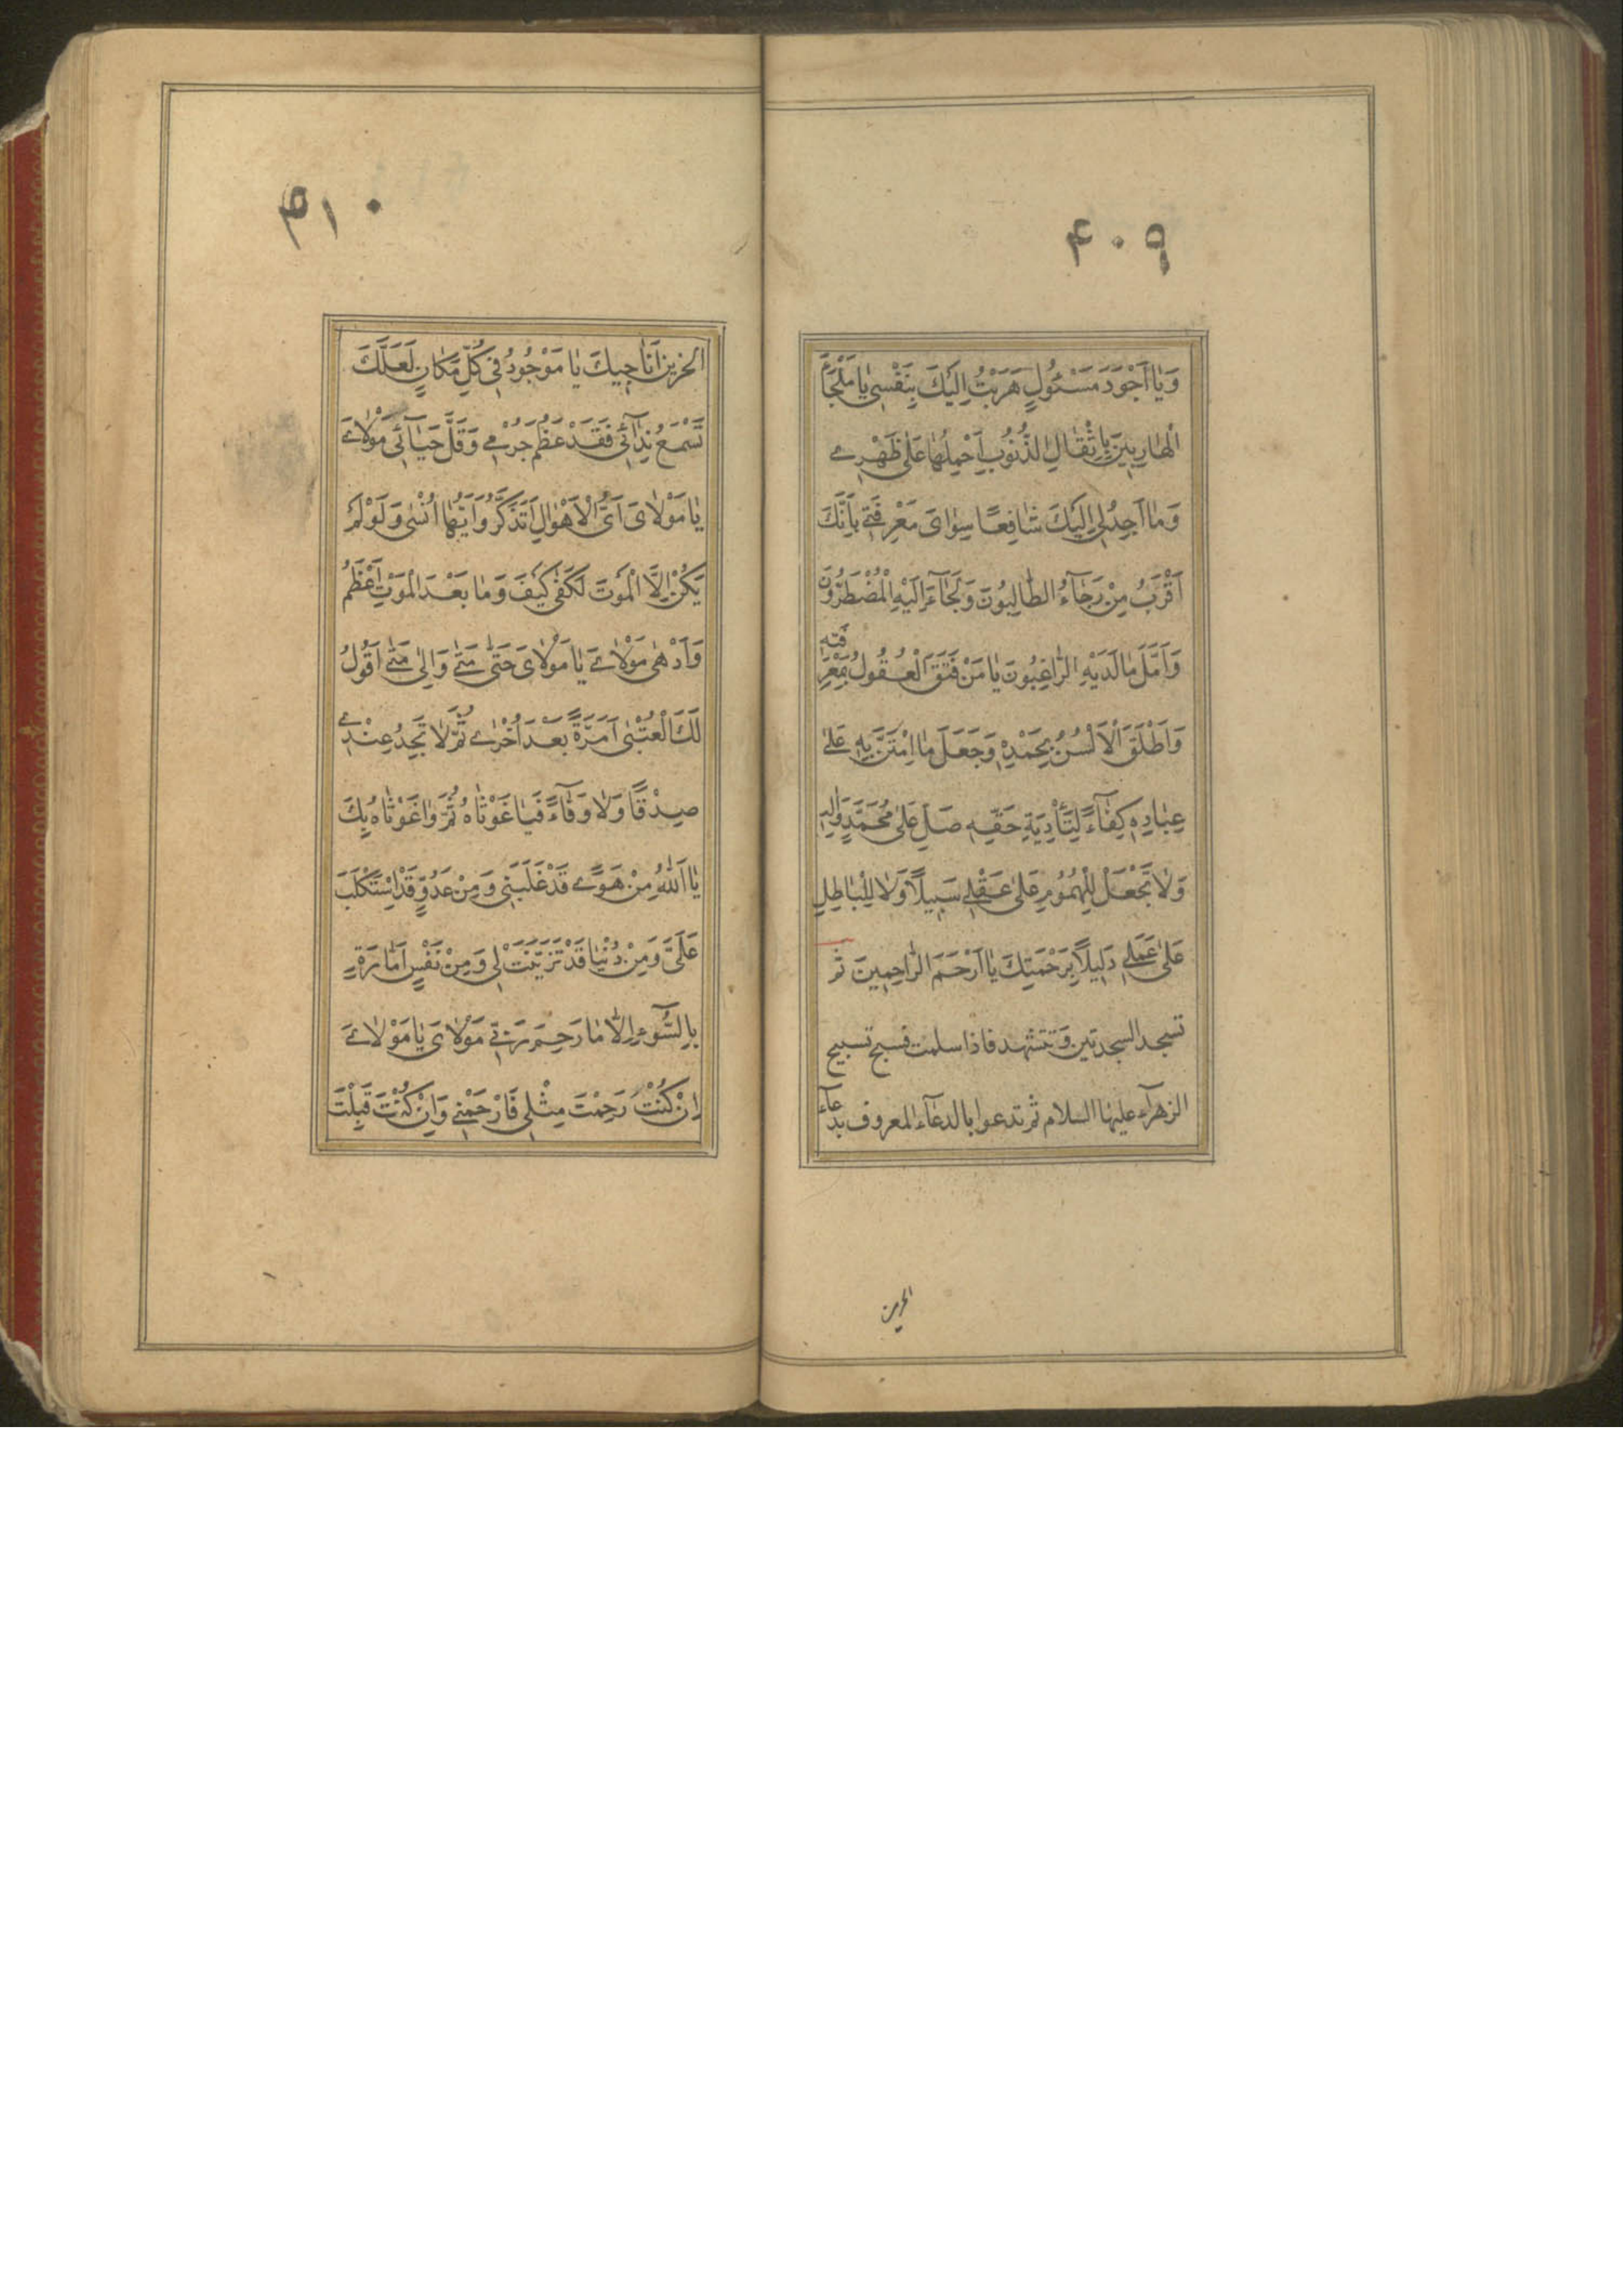 ۴۰۹
وَيَا اَجْوَدَ مَسْئُولٍ هَرَبْتُ اِلَيْكَ بِنَفْسِى يَا مَلْجَأَ
الْهَارِبِينَ بِاَثْقَالِ الذُّنُوبِ اَحْمِلُهَا عَلٰى ظَهْرِى
وَمَا اَجِدُ لِى اِلَيْكَ شَافِعًا سِوَاىَ مَعْرِفَتِى بِاَنَّكَ
اَقْرَبُ مِنْ رَجَآءُ الطَّالِبُونَ وَلَجَاءَ اِلَيْهِ الْمُضْطَرُّونَ
وَاَمَّلَ مَا لَدَيْهِ الرَّاغِبُونَ يَا مَنْ فَتَقَ الْعُقُولُ بِمَعْرِ
فَتِهِ
وَاَطْلَقَ الْاَلْسُنُ بِحَمْدِهِ وَجَعَلَ مَا امْتَنَّ بِهِ عَلٰى
عِبَادِهِ كِفَآءً لِتَأْدِيَةِ حَقِّهِ صَلِّ عَلٰى مُحَمَّدٍ وَاٰلِهِ
وَلَا تَجْعَلْ لِلْهُمُومِ عَلٰى عَقْلِى سَبِيلًا وَلَا لِلْبَاطِلِ
عَلٰى عَمَلِى دَلِيلًا بِرَحْمَتِكَ يَا اَرْحَمَ الرَّاحِمِينَ ثم
تسجد السجدتين وتتشهد فاذا سلمت فسبح تسبيح
الزهرآء عليها السلام ثم تدعوا بالدعآء المعروف بدعآء
الحزين
۴۱۰
الحزين اُنَاجِيكَ يَا مَوْجُودُ فِى كُلِّ مَكَانٍ لَعَلَّكَ
تَسْمَعُ نِدَآئِى فَقَدْ عَظُمَ جُرْمِى وَقَلَّ حَيَآئِى مَوْلَاىَ
يَا مَوْلَاىَ اَىَّ الْاَهْوَالِ اَتَذَكَّرُ وَاَيَّهَا اَنْسٰى وَلَوْ لَمْ
يَكُنْ اِلَّا الْمَوْتَ لَكَفٰى كَيْفَ وَمَا بَعْدَ الْمَوْتِ اَعْظَمُ
وَاَدْهٰى مَوْلَاىَ يَا مَوْلَاىَ حَتّٰى مَتٰى وَاِلٰى مَتٰى اَقُولُ
لَكَ الْعُتْبٰى اَمَرَّةً بَعْدَ اُخْرٰى ثُمَّ لَا تَجِدُ عِنْدِى
صِدْقًا وَلَا وَفَآءً فَيَا غَوْثَاهُ ثُمَّ وَاغَوْثَاهُ بِكَ
يَا اَللهُ مِنْ هَوًى قَدْ غَلَبَنِى وَمِنْ عَدُوٍّ قَدِ اسْتَكْلَبَ
عَلَىَّ وَمِنْ دُنْيَا قَدْ تَزَيَّنَتْ لِى وَمِنْ نَفْسٍ اَمَّارَةٍ
بِالسُّوٓءِ اِلَّا مَا رَحِمَ رَبِّى مَوْلَاىَ يَا مَوْلَاىَ
اِنْ كُنْتَ رَحِمْتَ مِثْلِى فَارْحَمْنِى وَاِنْ كُنْتَ قَبِلْتَ